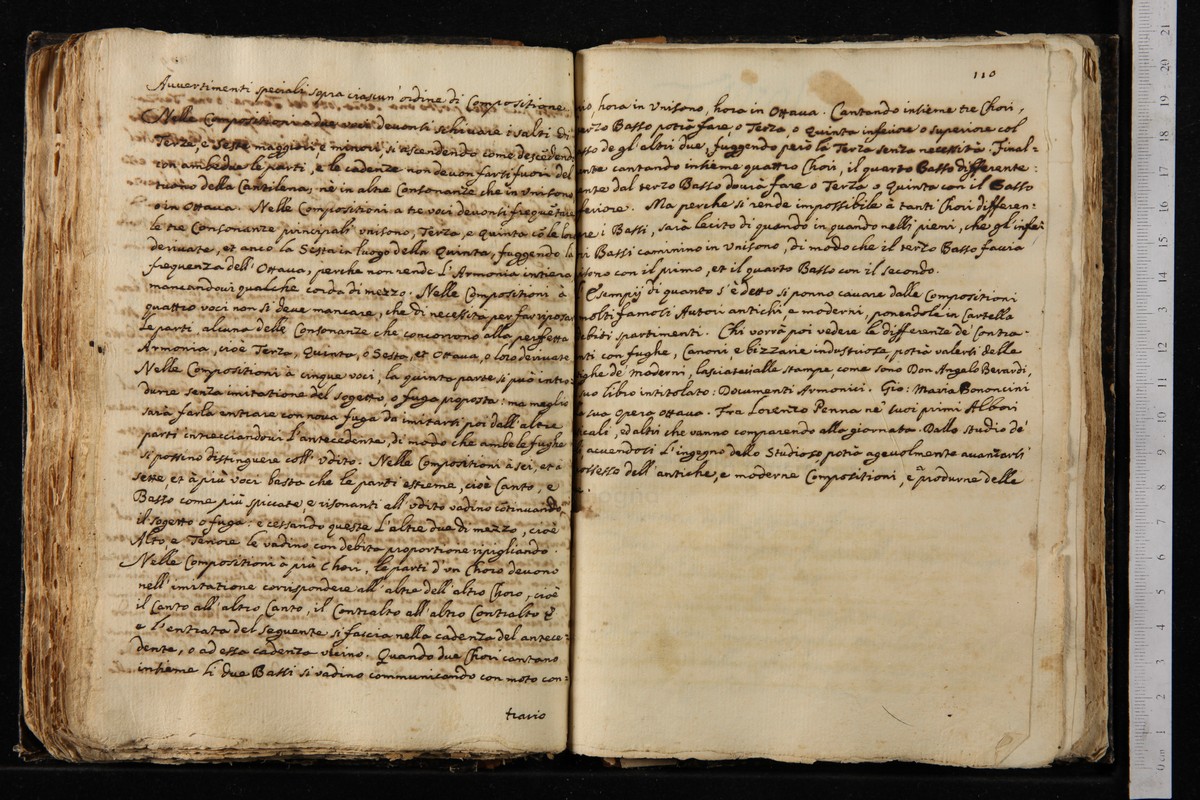 Avvertimenti speciali sopra ciascun' ordine di Compositione
Nelle Compositioni a due voci devonsi schivare i salti di
Terza, e Seste maggiori, e minori si ascendendo come descēdendo
con ambedue le parti, e le cadenze non devon farsi fuori del
tuono della Cantilena, nè in altre Consonanze che in Unisono
o in Ottava. Nelle Compositioni a tre voci devonsi frequētare
le tre Consonanze principali Unisono, Terza, e Quinta cō le loro
derivate, et anco la Sesta in luogo della Quinta, fuggendo la
frequenza dell' Ottava, perche non rende L'Armonia intiera
mancandovi qualche corda di mezzo. Nelle Compositioni à
quattro voci non si deve mancare, che di necessità per far riposar
Le parti alcuna delle Consonanze che concorrono alla perfetta
Armonia, cioè Terza, Quinta, o Sesta, et Ottava, o loro derivate
Nelle Compositioni à cinque voci, la quinta parte si può intro=
durre senza imitatione del sogetto o fuga proposta: ma meglio
sarà farla entrare con nova fuga da imitarsi poi dall' altre
parti intrecciandovi L'antecedente, di modo che ambe le fughe
si possino distinguere coll' udito. Nelle Compositioni à sei, et à
sette, et à più voci basta che le parti estreme, cioè Canto, e
Basso come più spiccate, e risonanti all' udito vadino cōtinuando
il sogetto o fuga: e cessando queste L'altre due di mezzo, cioè
Alto, e Tenore le vadino con debita proportione ripigliando.
Nelle Compositioni à più Chori, le parti d'un Choro devono
nell' imitatione corrispondere all' altre dell' altro Choro, cioè
il Canto all' altro Canto, il Contralto all' altro Contralto &
e L'entrata del seguente si faccia nella cadenza del antece=
dente, o ad essa cadenza vicino. Quando due Chori cantano
insieme li due Bassi si vadino communicando con moto con=
trario
110
hora in Unisono, hora in Ottava. Cantando insieme tre Chori,
Basso potrà fare, o Terza, o Quinta inferiore o superiore col
de gl'altri due, fuggendo però la Terza senza necessità. Final=
cantando insieme quattro Chori, il quarto Basso differente=
dal terzo Basso dovrà fare o Terza o Quinta con il Basso
Ma perche si rende impossibile à tanti Chori differen=
i Bassi, sarà lecito di quando in quando nelli pieni, che gli infe=
Bassi caminino in Unisono, di modo che il terzo Basso faccia
con il primo, et il quarto Basso con il secondo.
Esempij di quanto s'è detto si ponno cavare dalle Compositioni
molti famosi Autori antichi e moderni, ponendole in Cartella
spartimenti. Chi vorrà poi vedere le differenze de Contra=
con fughe, Canoni, e bizzarie industriose potrà valersi delle
de' moderni, lasciate alle stampe, come sono Don Angelo Berardi,
suo libro intitolato: Documenti Armonici. Gio: Maria Bononcini
sua opera ottava. Fra Lorenzo Penna ne' suoi primi Albori
ed altri che vanno comparendo alla giornata. Dallo studio de'
acuendosi L'ingegno dello Studioso potrà agevolmente avanzarsi
dell' antiche, e moderne Compositioni, e à produrne delle